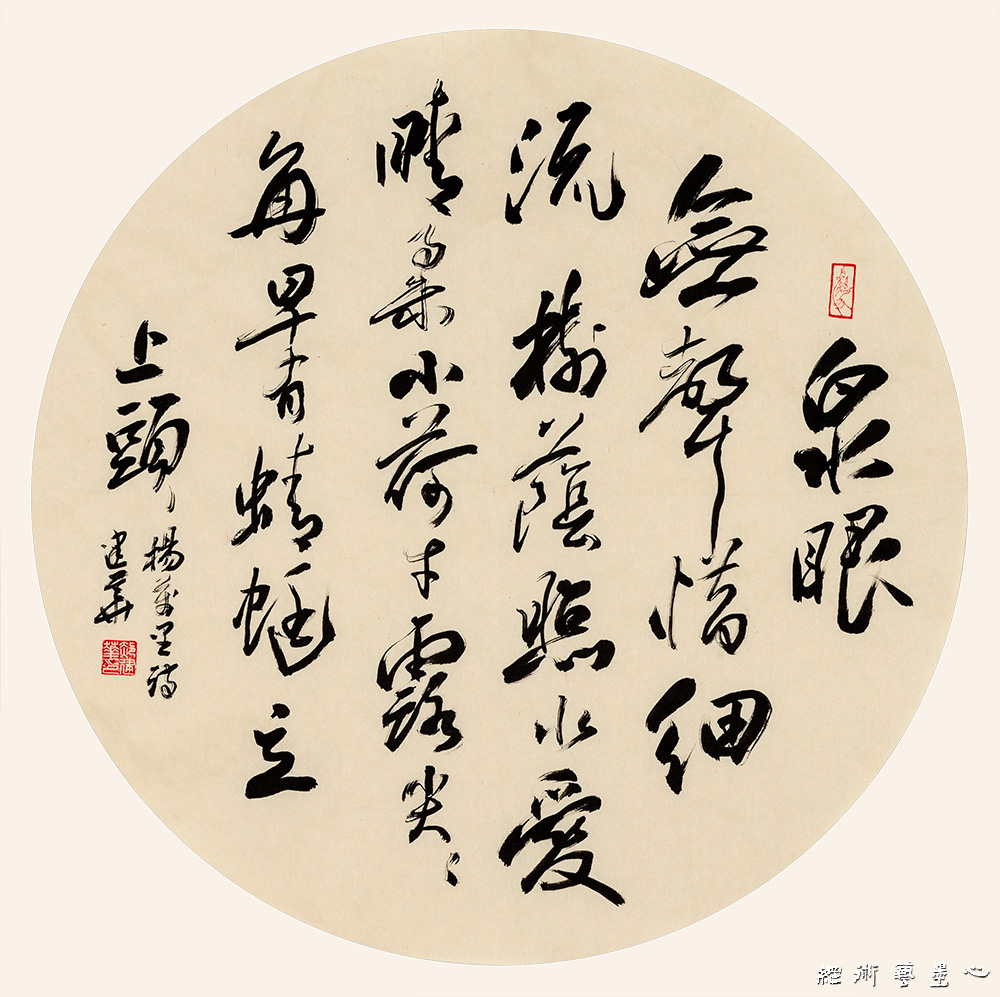 泉眼
無聲惜細
流樹蔭照水愛
晴柔小荷才露尖々
角早有蜻蜓立
上頭
楊萬里詩
建華
心畫藝術